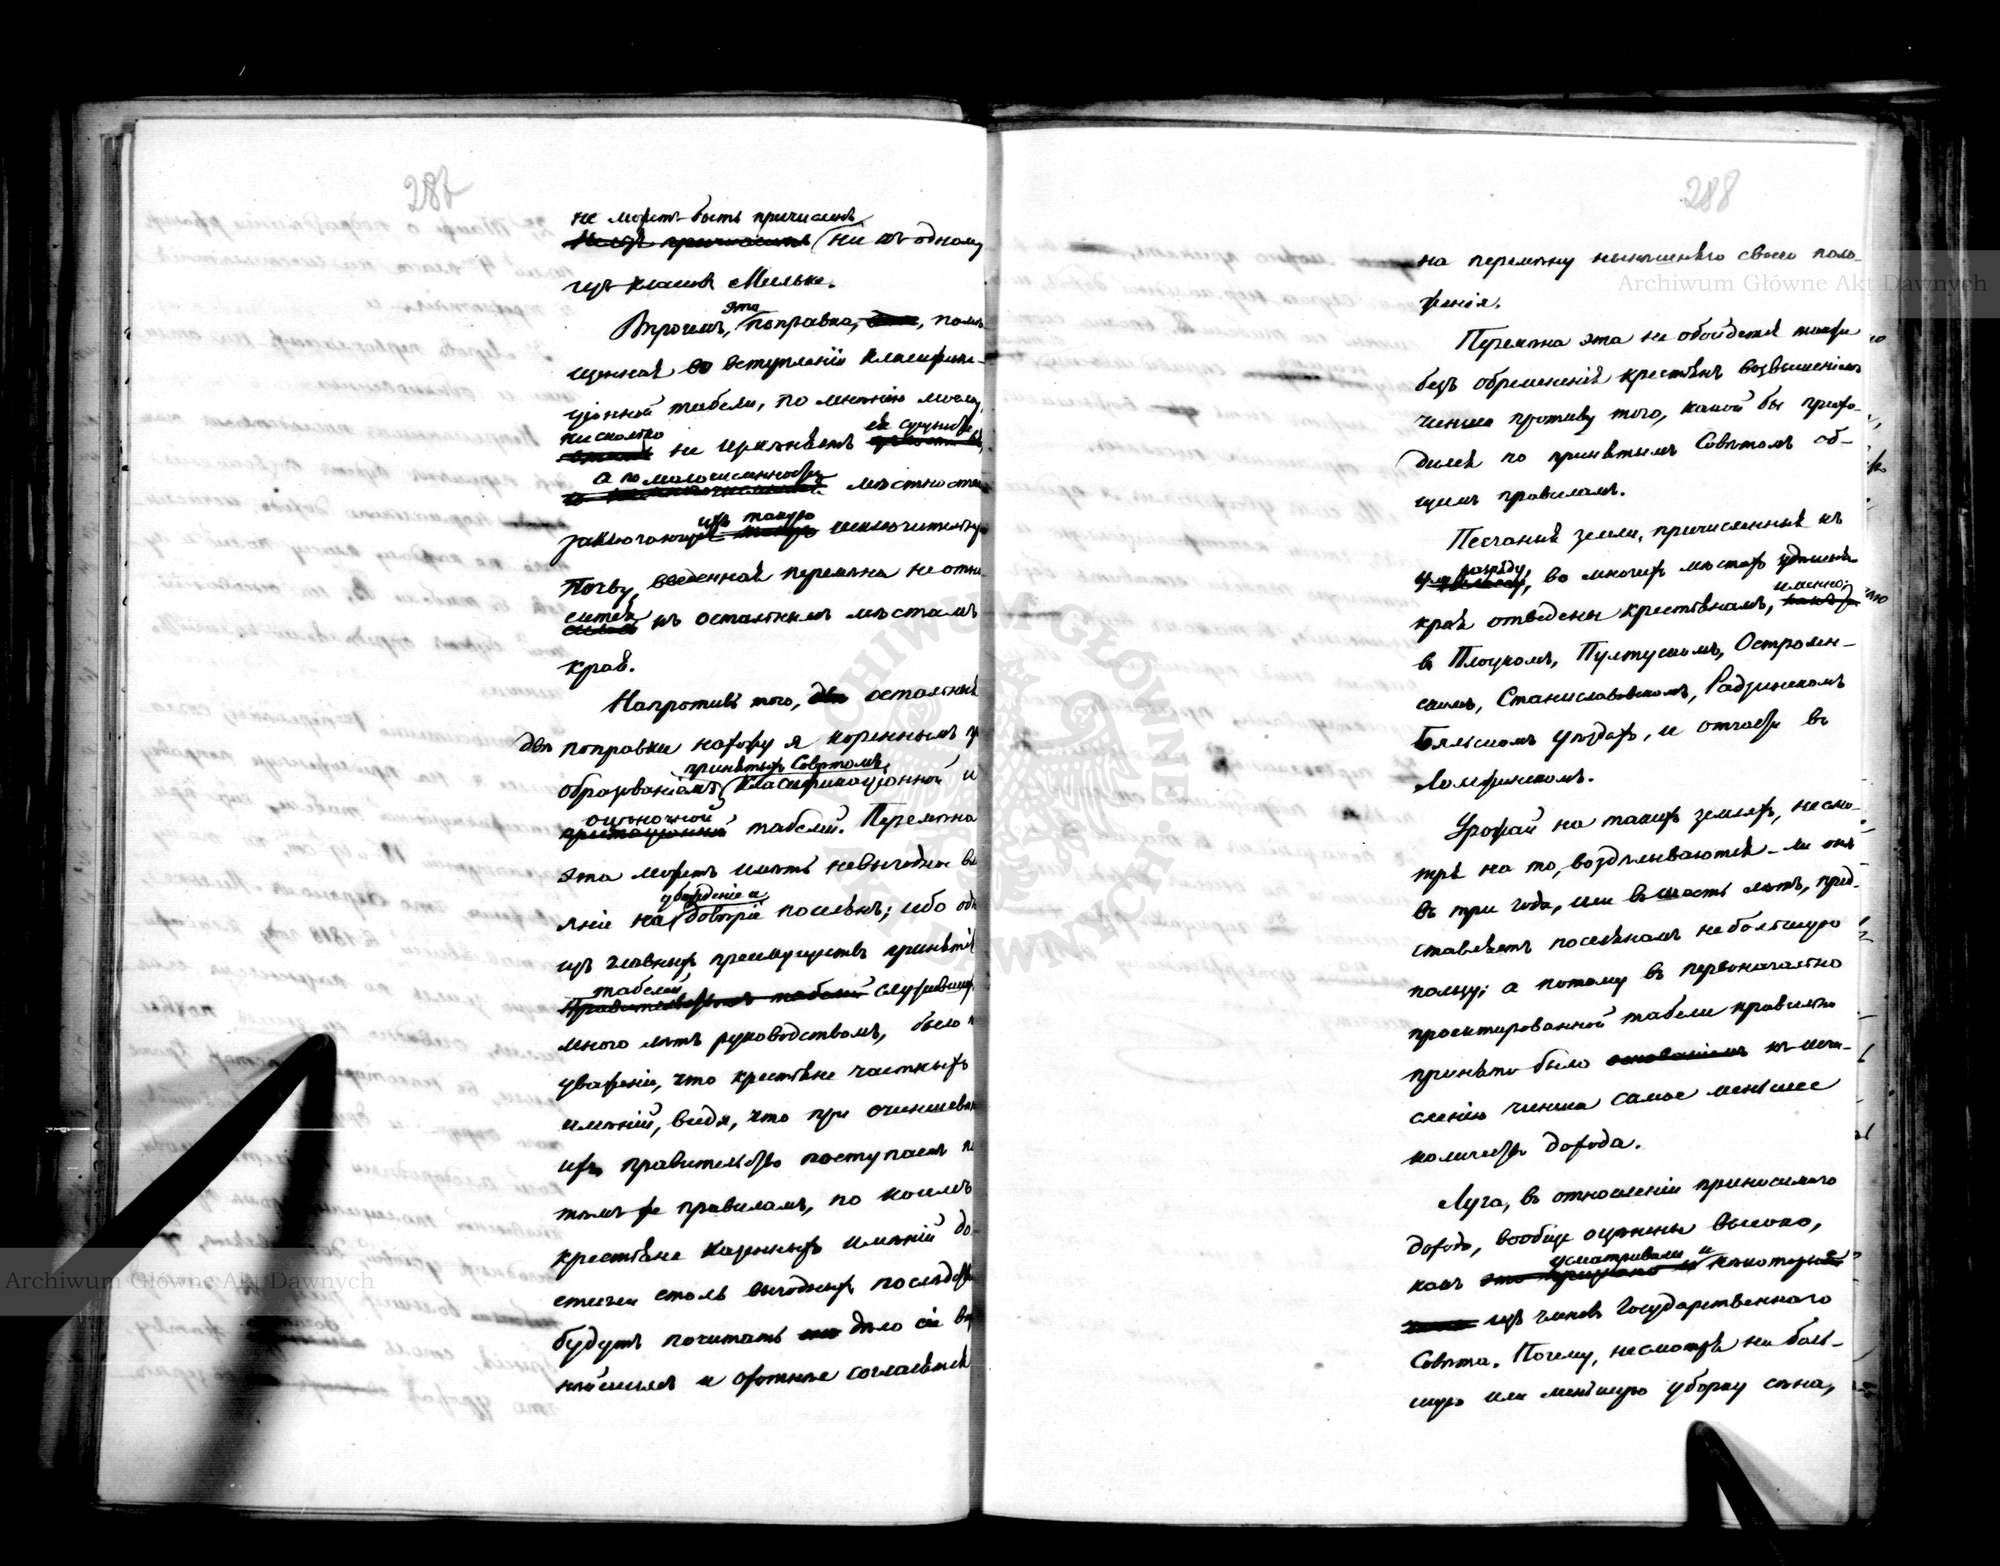 287
не можетъ быть причисленъ
ни къ одному
изъ классовъ Мильке.
Впрочемъ, эта поправка, помѣ
щенная во вступленіи классифика-
ціонной табели, по мнѣнію моему,
нисколько не измѣняетъ ея сущности,
а по малочисленности мѣстностей
заключающихъ такую исключительную
почву, введенная перемѣна не отно
сится къ остальнымъ мѣстамъ
края.
Напротивъ того, остальныя
двѣ поправки нахожу я кореннымъ
образованіемъ принятыхъ Совѣтомъ классификаціонной и
оцѣночной табелей. Перемѣна
эта можетъ имѣть невыгодное влі
яніе на убѣжденіе и довѣріе поселянъ; ибо
изъ главныхъ преимуществъ принятія
табелей, служившихъ
много лѣтъ руководствомъ, было
уваженіе, что крестьяне частныхъ
имѣній, видя, что при очиншеваніи
ихъ правительство поступаетъ по
тѣмъ же правиламъ, по коимъ
крестьяне казенныхъ имѣній до-
стигли столь выгодныхъ послѣдствій
будутъ почитать дѣло сіе
и охотнѣе согласятся
288
на перемѣну нынѣшняго своего поло-
женія.
Перемѣна эта не обойдется также
безъ обремененія крестьянъ возвышеніемъ
чинша противу того, какой бы прихо-
дился по принятымъ Совѣтомъ об-
щимъ правиламъ.
Песчаныя земли, причисленныя къ
разряду, во многихъ мѣстахъ
края отведены крестьянамъ, именно:
въ Плоцкомъ, Пултускомъ, Остролен-
скомъ, Станиславовскомъ, Радзинскомъ
Бяльскомъ уѣздахъ, и отчасти въ
Ломжинскомъ.
Урожай на такихъ земляхъ, несмо-
тря на то, воздѣлываются-ли онѣ
въ три года, или въ шесть лѣтъ, пред-
ставляетъ поселянамъ небольшую
пользу; а потому въ первоначально
проектированной табели правильно
принято было къ исчи-
сленію чинша самое меньшее
количество дохода.
Луга, въ отношеніи приносимаго
дохода, вообще оцѣнены высоко,
какъ усматривали и нѣкоторые
изъ членовъ Государственнаго
Совѣта. Почему, несмотря на боль-
шую или меньшую уборку сѣна,
Archiwum Główne Akt Dawnych
Archiwum Główne Akt Dawnych
ARCHIWUM GŁÓWNE AKT DAWNYCH